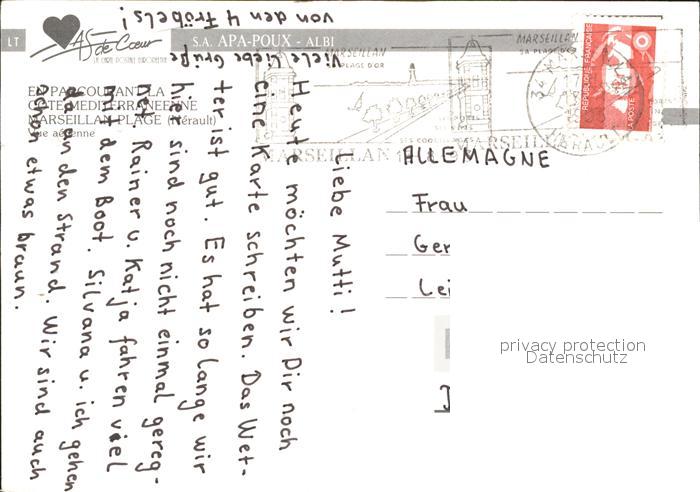 LT
AS de Cœur
LA CARTE POSTALE EUROPEENNE
S.A. APA-POUX - ALBI
EN PARCOURANT LA
COTE MEDITERRANEENNE
MARSEILLAN PLAGE (Hérault)
Vue aérienne
Liebe Mutti!
Heute möchten wir Dir noch
eine Karte schreiben. Das Wet-
ter ist gut. Es hat so lange wir
hier sind noch nicht einmal gereg-
net. Rainer u. Katja fahren viel
mit dem Boot. Silvana u. ich gehen
dann an den Strand. Wir sind auch
schon etwas braun.
Viele liebe Grüße
von den 4 Fröbels!
MARSEILLAN
PLAGE D'OR
MARSEILLAN
SA PLAGE D'OR
MARSEILLAN
MARSEILLE
34 MA
HERAULT
REPUBLIQUE FRANÇAISE
LA POSTE
ALLEMAGNE
Frau
Ger
Lei
privacy protection
Datenschutz